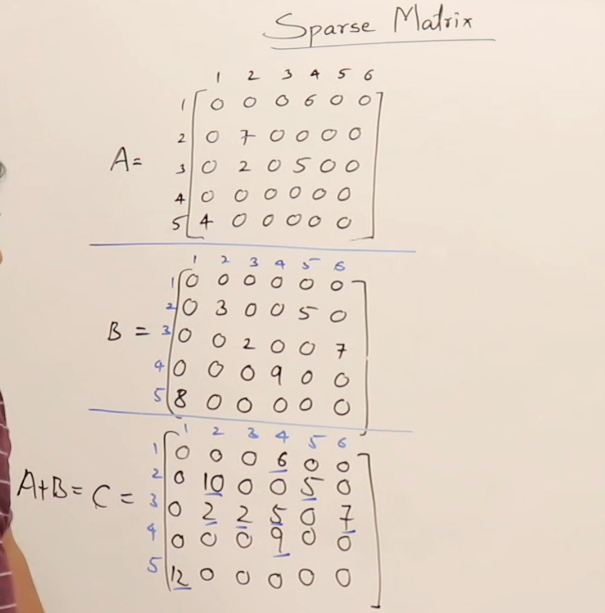 Sparse Matrix
1 2 3 4 5 6
1 0 0 0 6 0 0
2 0 7 0 0 0 0
A= 3 0 2 0 5 0 0
4 0 0 0 0 0 0
5 4 0 0 0 0 0
1 2 3 4 5 6
1 0 0 0 0 0 0
2 0 3 0 0 5 0
B = 3 0 0 2 0 0 7
4 0 0 0 9 0 0
5 8 0 0 0 0 0
1 2 3 4 5 6
1 0 0 0 6 0 0
2 0 10 0 0 5 0
A+B= C = 3 0 2 2 5 0 7
4 0 0 0 9 0 0
5 12 0 0 0 0 0